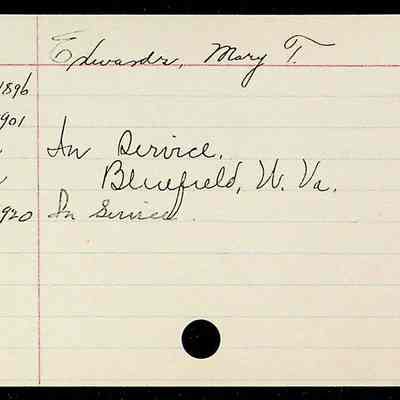 Edwards, Mary T.
1896
901
In Service.
Bluefield, W. Va.
920 In Service.